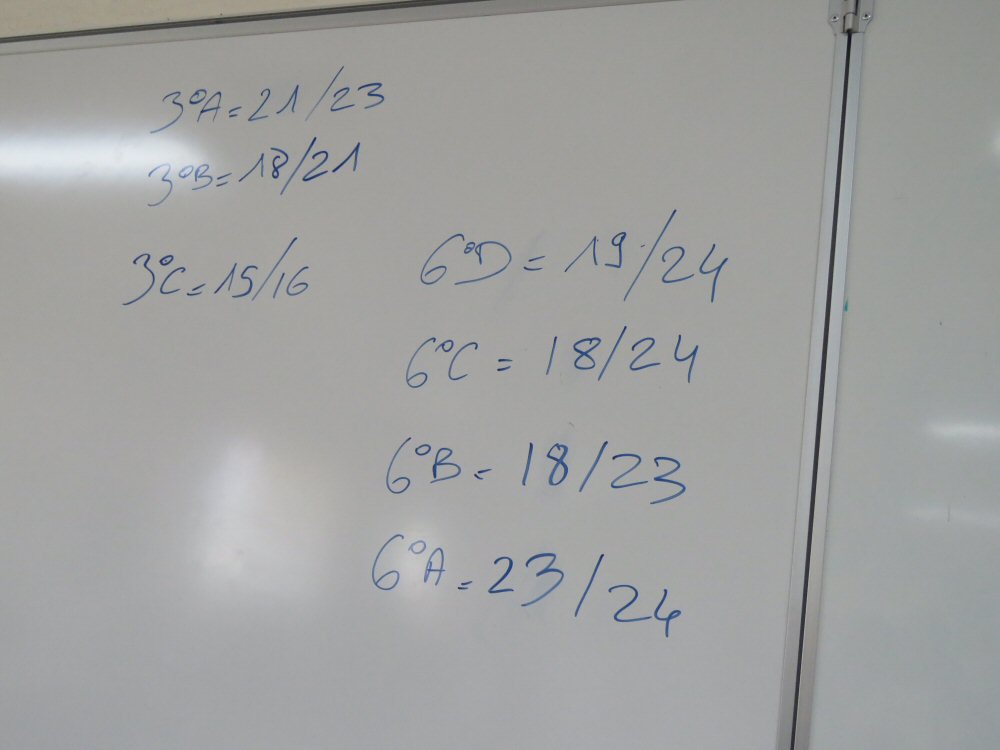 3ºA = 21/23
3ºB = 18/21
3ºC = 15/16
6ºD = 19/24
6ºC = 18/24
6ºB = 18/23
6ºA = 23/24